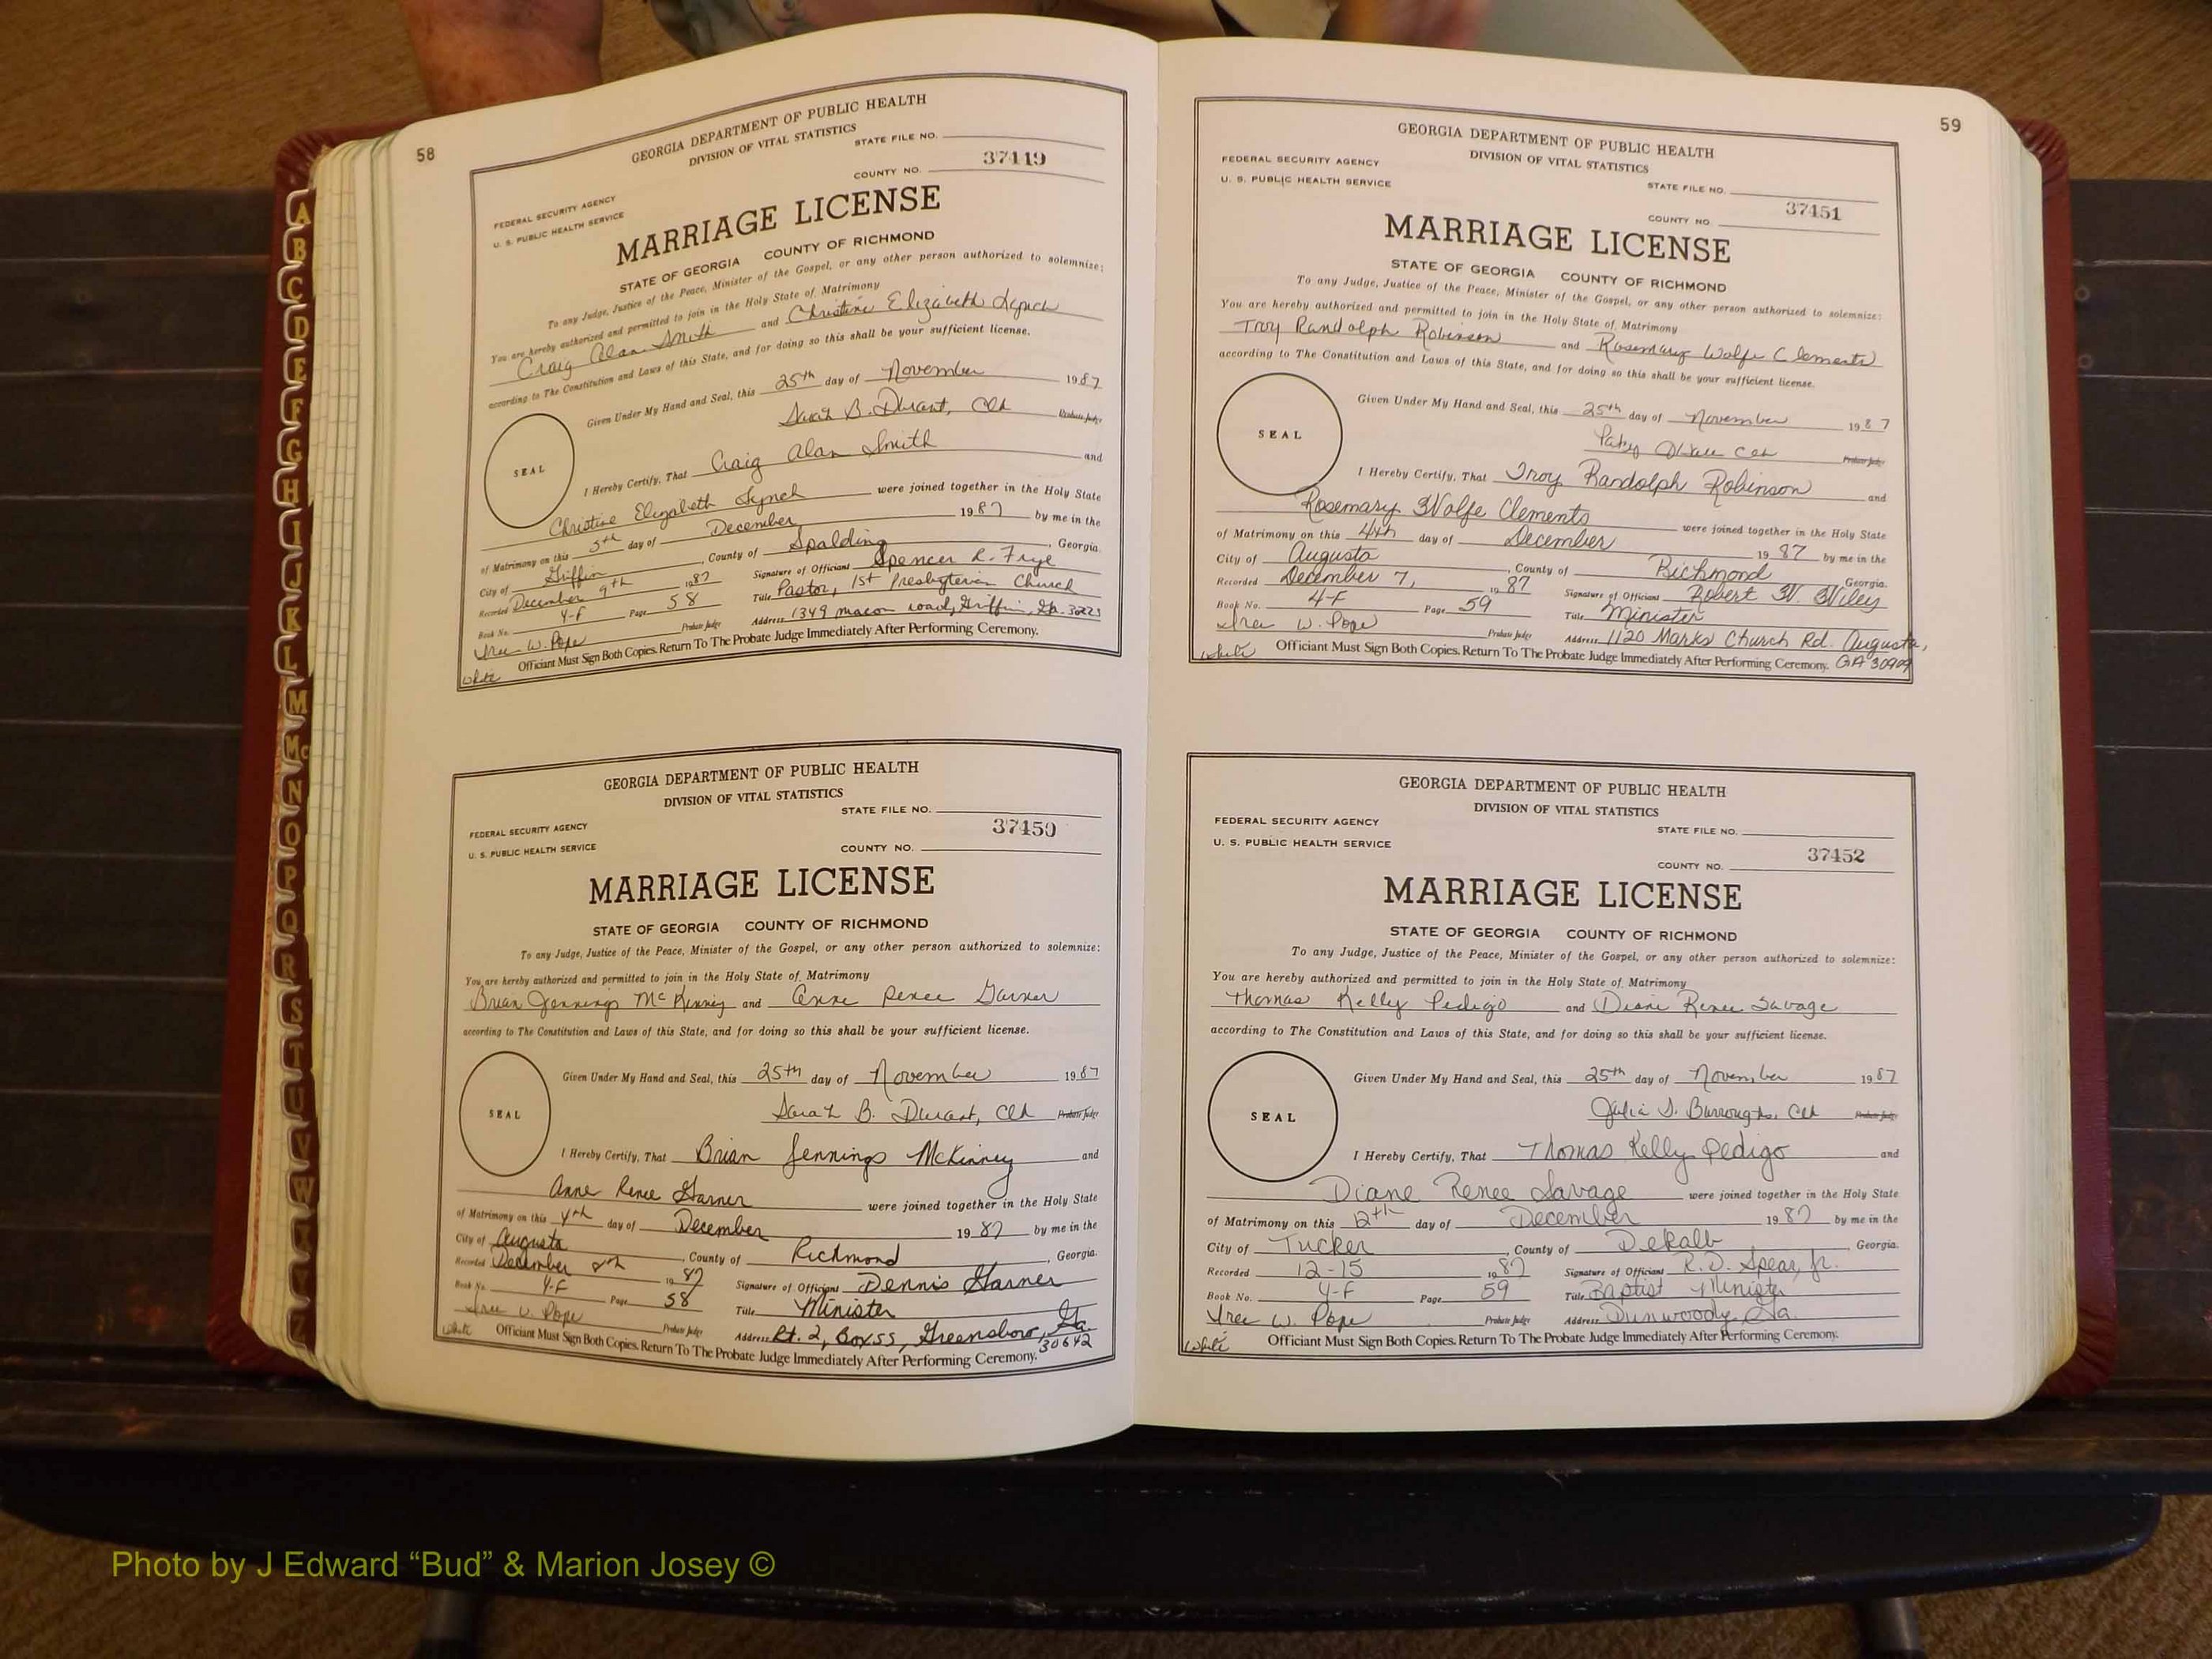 58
GEORGIA DEPARTMENT OF PUBLIC HEALTH
DIVISION OF VITAL STATISTICS
STATE FILE NO.
37449
FEDERAL SECURITY AGENCY
COUNTY NO.
U. S. PUBLIC HEALTH SERVICE
MARRIAGE LICENSE
STATE OF GEORGIA COUNTY OF RICHMOND
To any Judge, Justice of the Peace, Minister of the Gospel, or any other person authorized to solemnize:
You are hereby authorized and permitted to join in the Holy State of Matrimony
Craig Alan Smith and Christine Elizabeth Lynch
according to The Constitution and Laws of this State, and for doing so this shall be your sufficient license.
Given Under My Hand and Seal, this 25th day of November 1987
Sarah B. Durant, Clk Probate Judge
SEAL
I Hereby Certify, That Craig Alan Smith and
Christine Elizabeth Lynch were joined together in the Holy State
of Matrimony on this 5th day of December 1987 by me in the
City of Griffin, County of Spalding, Georgia.
Recorded December 9th 1987 Signature of Officiant Spencer R. Frye
Book No. 4-F Page 58 Title Pastor, 1st Presbyterian Church
W. Pope Probate Judge Address 1349 Macon road, Griffin, Ga. 30223
White Officiant Must Sign Both Copies. Return To The Probate Judge Immediately After Performing Ceremony.
GEORGIA DEPARTMENT OF PUBLIC HEALTH
DIVISION OF VITAL STATISTICS
STATE FILE NO.
37450
FEDERAL SECURITY AGENCY
U. S. PUBLIC HEALTH SERVICE COUNTY NO.
MARRIAGE LICENSE
STATE OF GEORGIA COUNTY OF RICHMOND
To any Judge, Justice of the Peace, Minister of the Gospel, or any other person authorized to solemnize:
You are hereby authorized and permitted to join in the Holy State of Matrimony
Brian Jennings McKinney and Anne Renee Garner
according to The Constitution and Laws of this State, and for doing so this shall be your sufficient license.
Given Under My Hand and Seal, this 25th day of November 1987
SEAL Sarah B. Durant, Clk Probate Judge
I Hereby Certify, That Brian Jennings McKinney and
Anne Renee Garner were joined together in the Holy State
of Matrimony on this 4th day of December 1987 by me in the
City of Augusta, County of Richmond, Georgia.
Recorded December 8th 1987 Signature of Officiant Dennis Garner
Book No. 4-F Page 58 Title Minister
W. Pope Probate Judge Address Rt. 2, Box 55, Greensboro, Ga. 30642
White Officiant Must Sign Both Copies. Return To The Probate Judge Immediately After Performing Ceremony.
59
GEORGIA DEPARTMENT OF PUBLIC HEALTH
DIVISION OF VITAL STATISTICS
FEDERAL SECURITY AGENCY
U. S. PUBLIC HEALTH SERVICE STATE FILE NO.
37451
COUNTY NO.
MARRIAGE LICENSE
STATE OF GEORGIA COUNTY OF RICHMOND
To any Judge, Justice of the Peace, Minister of the Gospel, or any other person authorized to solemnize:
You are hereby authorized and permitted to join in the Holy State of Matrimony
Troy Randolph Robinson and Rosemary Wolfe Clements
according to The Constitution and Laws of this State, and for doing so this shall be your sufficient license.
Given Under My Hand and Seal, this 25th day of November 1987
SEAL Clk Probate Judge
I Hereby Certify, That Troy Randolph Robinson and
Rosemary Wolfe Clements were joined together in the Holy State
of Matrimony on this 4th day of December 1987 by me in the
City of Augusta, County of Richmond Georgia.
Recorded December 7, 1987 Signature of Officiant Robert W. Wiley
Book No. 4-F Page 59 Title Minister
W. Pope Probate Judge Address 1120 Marks Church Rd. Augusta,
White Officiant Must Sign Both Copies. Return To The Probate Judge Immediately After Performing Ceremony. GA 30909
GEORGIA DEPARTMENT OF PUBLIC HEALTH
DIVISION OF VITAL STATISTICS
FEDERAL SECURITY AGENCY STATE FILE NO.
U. S. PUBLIC HEALTH SERVICE 37452
COUNTY NO.
MARRIAGE LICENSE
STATE OF GEORGIA COUNTY OF RICHMOND
To any Judge, Justice of the Peace, Minister of the Gospel, or any other person authorized to solemnize:
You are hereby authorized and permitted to join in the Holy State of Matrimony
Thomas Kelly Pedigo and Diane Renee Savage
according to The Constitution and Laws of this State, and for doing so this shall be your sufficient license.
Given Under My Hand and Seal, this 25th day of November 1987
SEAL Julia S. Burroughs, Clk Probate Judge
I Hereby Certify, That Thomas Kelly Pedigo and
Diane Renee Savage were joined together in the Holy State
of Matrimony on this 12th day of December 1987 by me in the
City of Tucker, County of Dekalb, Georgia.
Recorded 12-15 1987 Signature of Officiant R. D. Spear, Jr.
Book No. 4-F Page 59 Title Baptist Minister
W. Pope Probate Judge Address Dunwoody, Ga.
White Officiant Must Sign Both Copies. Return To The Probate Judge Immediately After Performing Ceremony.
A
B
C
D
E
F
G
H
I
J
K
L
M
Mc
N
O
P
Q
R
S
T
U
V
W
X
Y
Z
Photo by J Edward “Bud” & Marion Josey ©